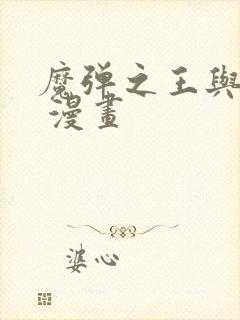 魔弹之王與
漫畫
婆心